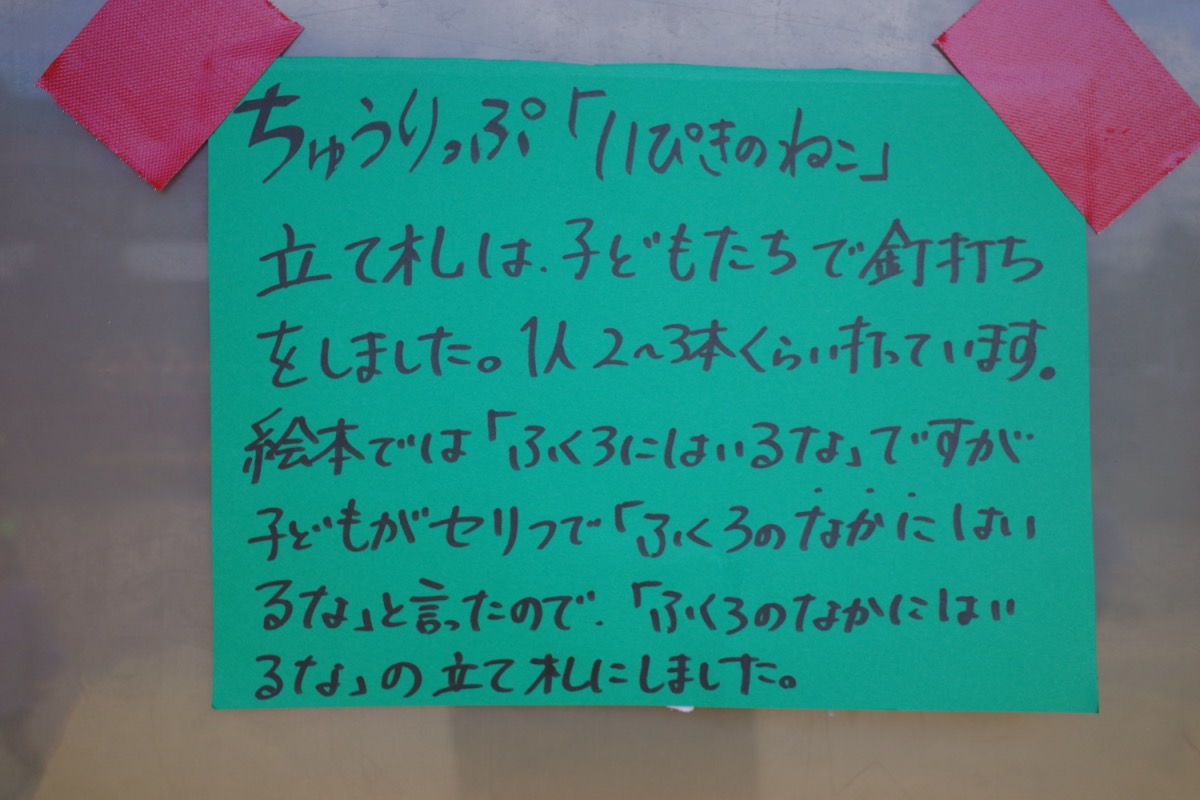 ちゅうりっぷ「11ぴきのねこ」
立て札は、子どもたちで釘打ち
をしました。1人2~3本くらい打っています。
絵本では「ふくろにはいるな」ですが
子どもがセリフで「ふくろのなかにはい
るな」と言ったので、「ふくろのなかにはい
るな」の立て札にしました。